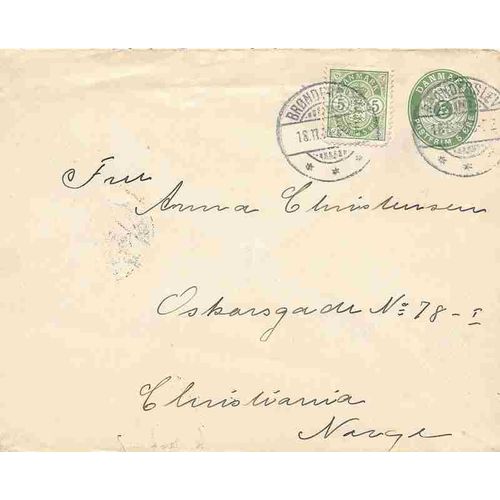 DANMARK
5 5
DANMARK
5
BRØNDERSLEV
BRØNDERSLEV
18.11
Fru
Anna Christensen
Oskarsgade No 78-I
Christiania
Norge